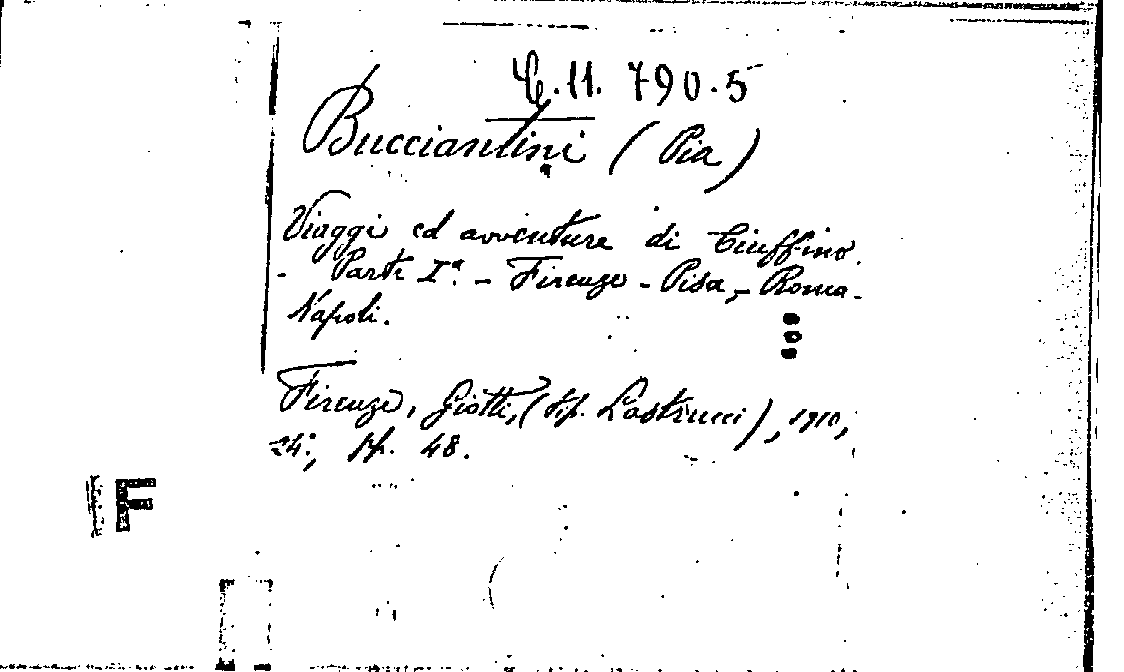 C.11. 790.5
Bucciantini (Pia)
Viaggi ed avventure di Ciuffino.
- Parte Iª. - Firenze - Pisa, - Roma -
Napoli.
Firenze, Giotti, (tip. Lastrucci), 1910,
24°, pp. 48.
F